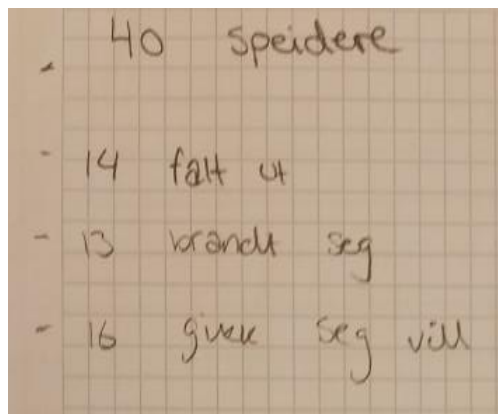 40 speidere
-
- 14 falt ut
- 13 brandt seg
- 16 givek seg vill